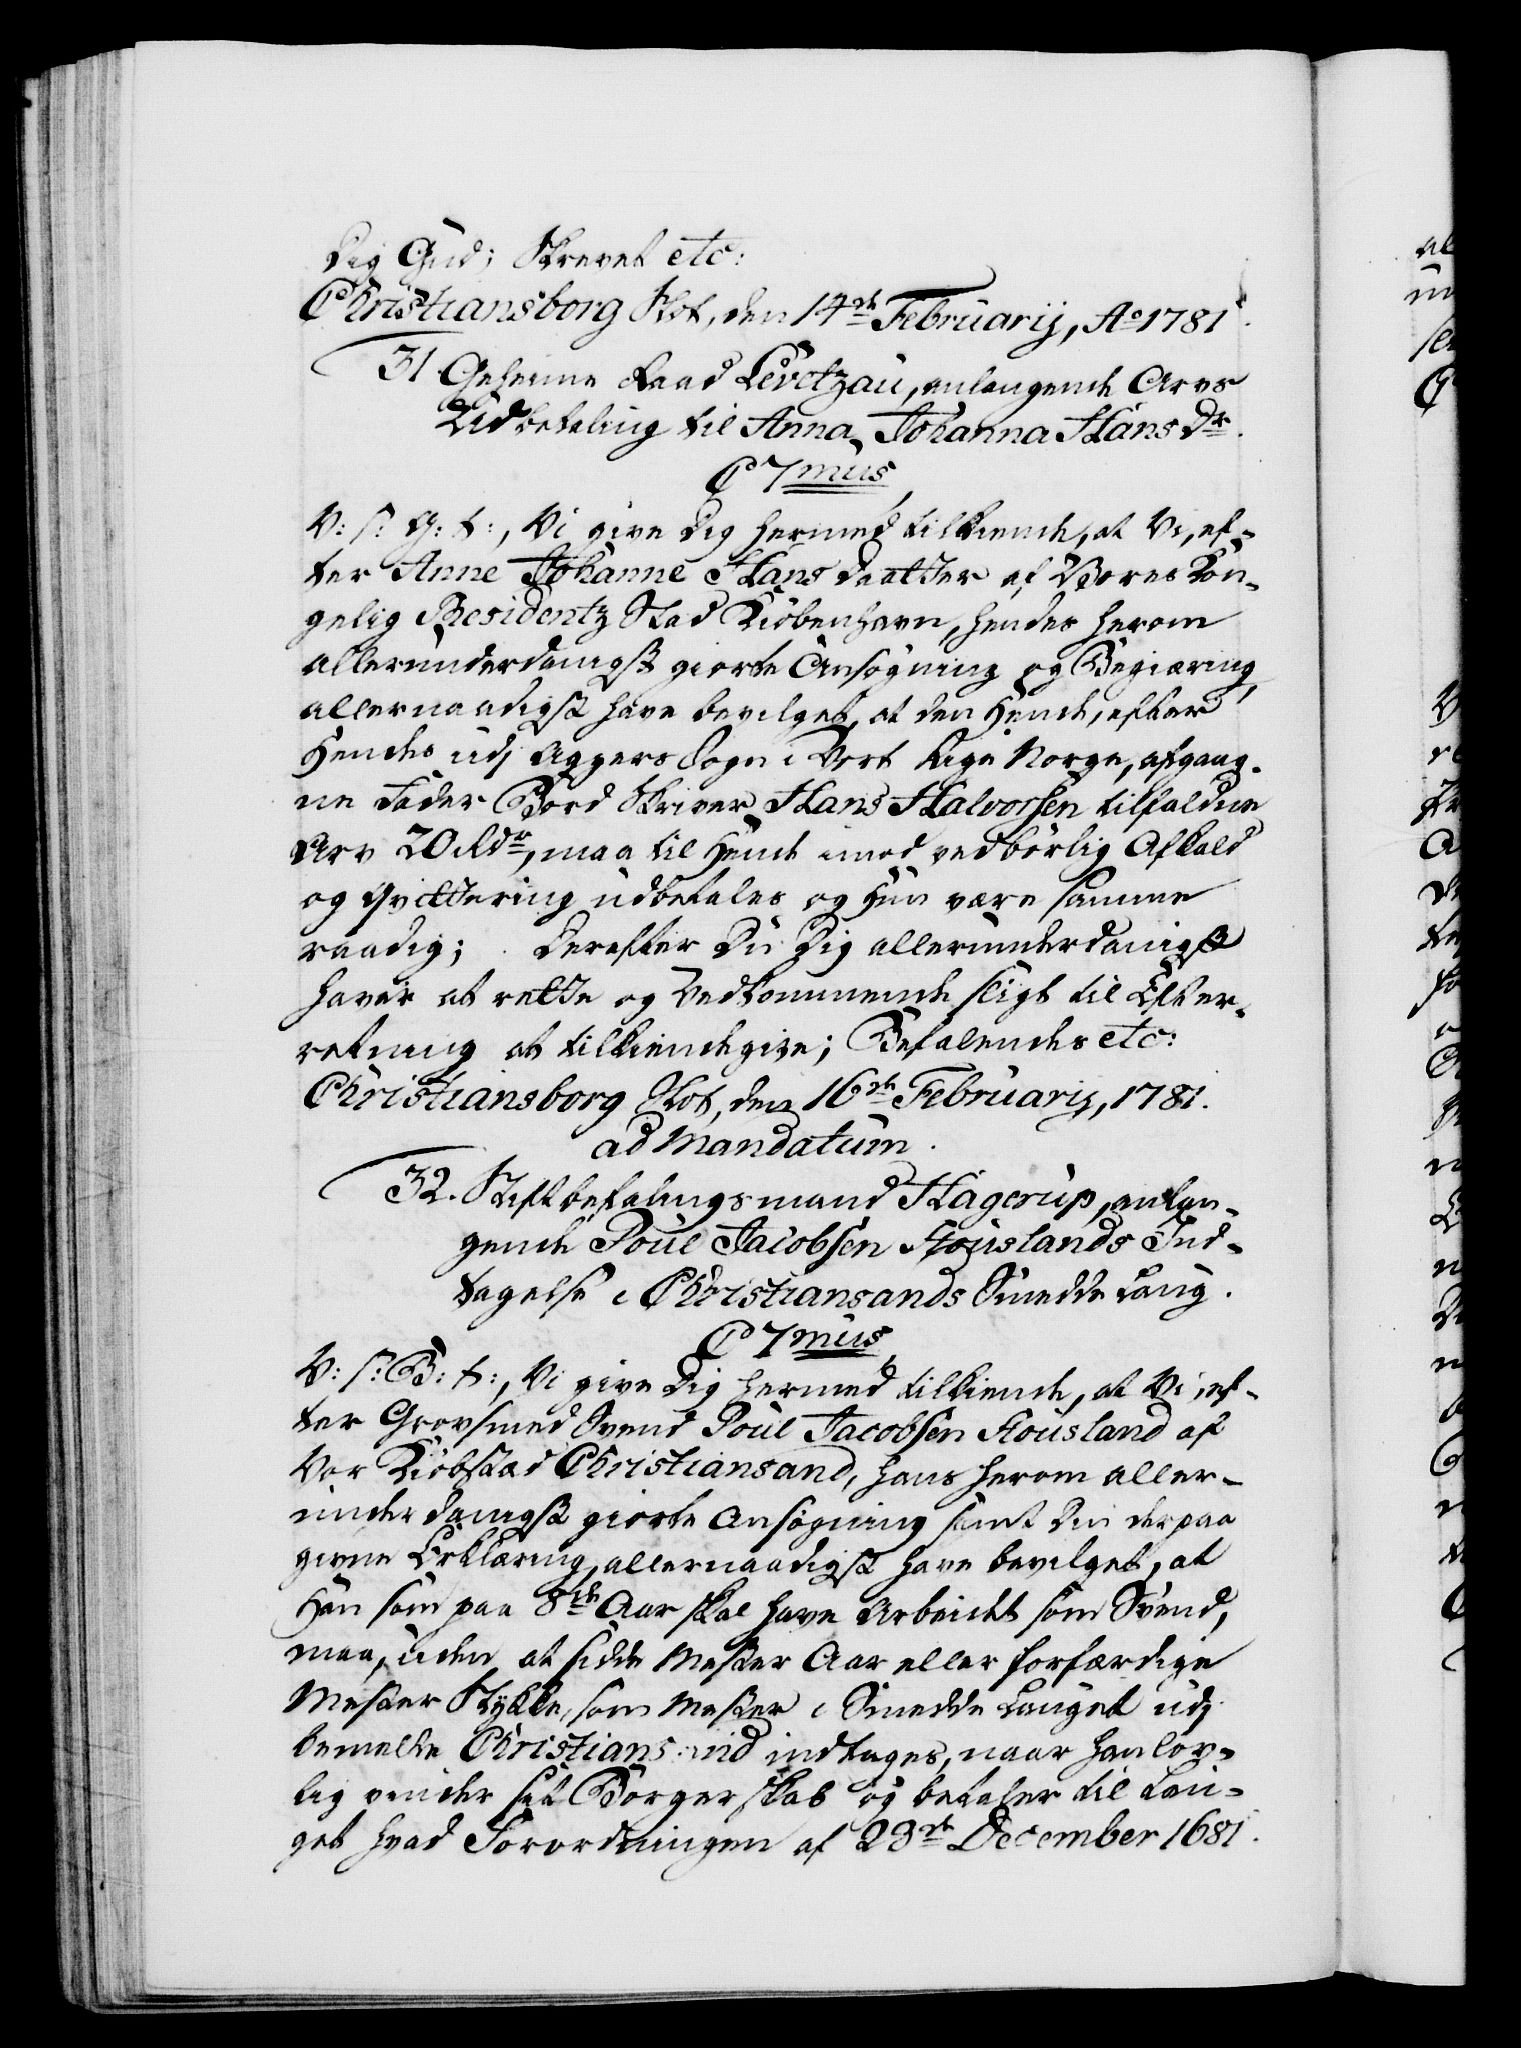 Dig Gud; Skrevet etc:
Christiansborg Slot, den 14de Februarij, Ao 1781.
31. Geheime Raad Levetzau, anlangende Arvs
Udbetaling til Anna Johanna Hans Dr.
C 7mus
V: s: G: t:, Vi give Dig hermed tilkiende, at Vi, ef-
ter Anne Johanne Hans Daatter af Vores Kon-
gelig Residentz Stad Kiøbenhavn, hendes herom
allerunderdanigst giorte Ansøgning og Begiæring,
allernaadigst have bevilget, at den Hende, efter
Hendes udj Aggers Sogn i Vort Rige Norge, afgang-
ne Fader Bord Skriver Hans Halvorsen tilfaldne
Arv 20 Rdr, maa til Hende imod vedbørlig Afkald
og Qvittering udbetales og Hun være samme
raadig; Derefter Du Dig allerunderdanigst
haver at rette og Vedkommende sligt til Efter-
retning at tilkiendegive; Befalendes etc:
Christiansborg Slot, den 16de Februarij, 1781.
ad Mandatum.
32. Stiftbefalingsmand Hagerup, anlan-
gende Poul Jacobsen Flouslands Ind-
tagelse i Christiansands Smedde Laug.
C 7mus
V: s: B: t:, Vi give Dig hermed tilkiende, at Vi, ef-
ter Grovsmed Svend Poul Jacobsen Flousland af
Vor Kiøbstad Christiansand, hans herom aller-
underdanigst giorte Ansøgning samt Din derpaa
givne Erklæring, allernaadigst have bevilget, at
Han som paa 8de Aar skal have Arbeidet som Svend,
maa, uden at sidde Mester Aar eller forfærdige
Mester Stykke, som Mester i Smedde Lauget udj
bemelte Christiansand indtages, naar han lov-
lig vinder sit Borgerskab og betaler til Lau-
get hvad Forordningen af 23de December 1681.